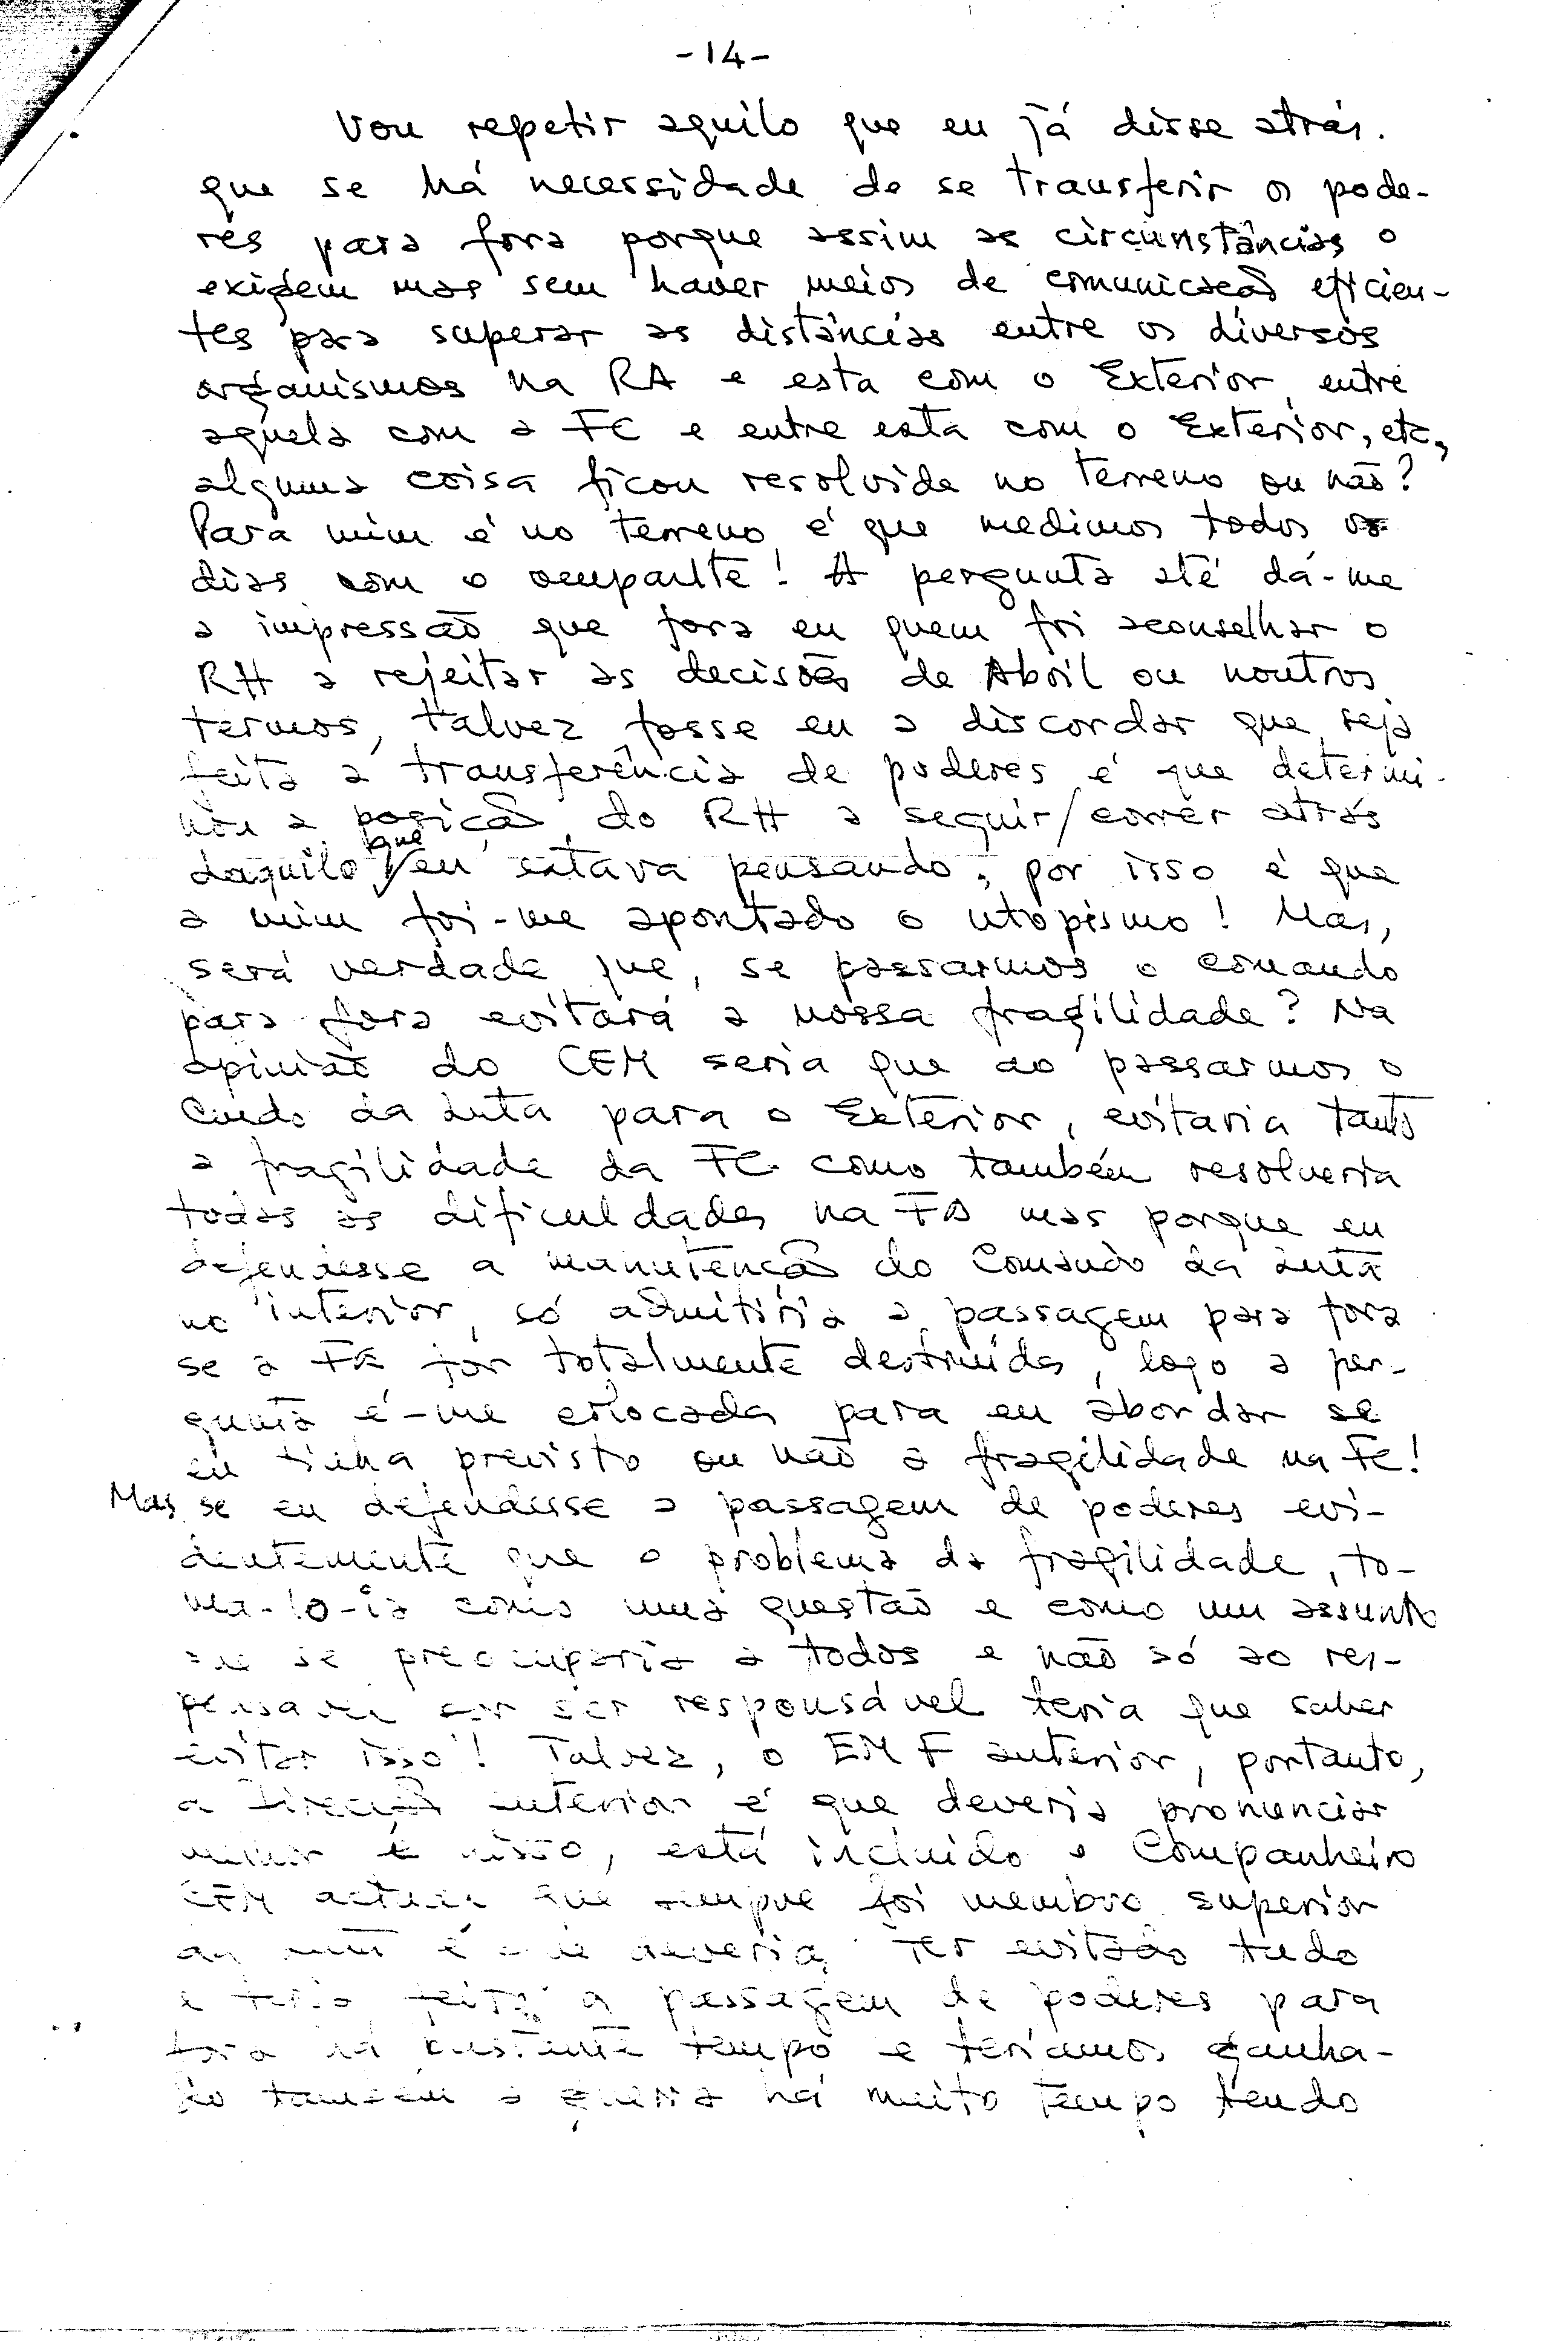 -14-
Vou repetir aquilo que eu já disse atrás.
que se há necessidade de se transferir os pode-
res para fora porque assim as circunstâncias o
exigem mas sem haver meios de comunicação eficien-
tes para superar as distâncias entre os diversos
organismos na RA e esta com o Exterior, entre
aquela com a FC e entre esta com o Exterior, etc,
alguma coisa ficou resolvida no terreno ou não?
Para mim é no terreno é que medimos todos os
dias com o ocupante! A pergunta até dá-me
a impressão que fora eu quem foi aconselhar o
RH a rejeitar as decisões de Abril ou noutros
termos, talvez fosse eu a discordar que seja
feita a transferência de poderes é que determi-
nou a posição do RH a seguir/correr atrás
daquilo que eu estava pensando, por isso é que
a mim foi-me apontado o utopismo! Mas,
será verdade que, se passarmos o comando
para fora evitará a nossa fragilidade? Na
opinião do CEM seria que ao passarmos o
Cmdo da Luta para o Exterior, evitaria tanto
a fragilidade da FC como também resolveria
todas as dificuldades na FA mas porque eu
defendesse a manutenção do Comando da Luta
no interior, só admitiria a passagem para fora
se a for totalmente destruída, logo a per-
gunta é-me colocada para eu abordar se
eu tinha previsto ou não a fragilidade na FC!
Mas se eu defendesse a passagem de poderes evi-
dentemente que o problema da fragilidade, to-
má-lo-ia como uma questão e como um assunto
que se preocuparia a todos e não só ao res-
ponsável por ser responsável teria que saber
evitar isso! Talvez, o EMF anterior, portanto,
a Direcção anterior é que deveria pronunciar
melhor nisso, está incluido o Companheiro
CEM actual que sempre foi membro superior
é que deveria ter evitado tudo
e teria feita a passagem de poderes para
fora há bastante tempo e teríamos ganha-
do também a guerra há muito tempo tendo